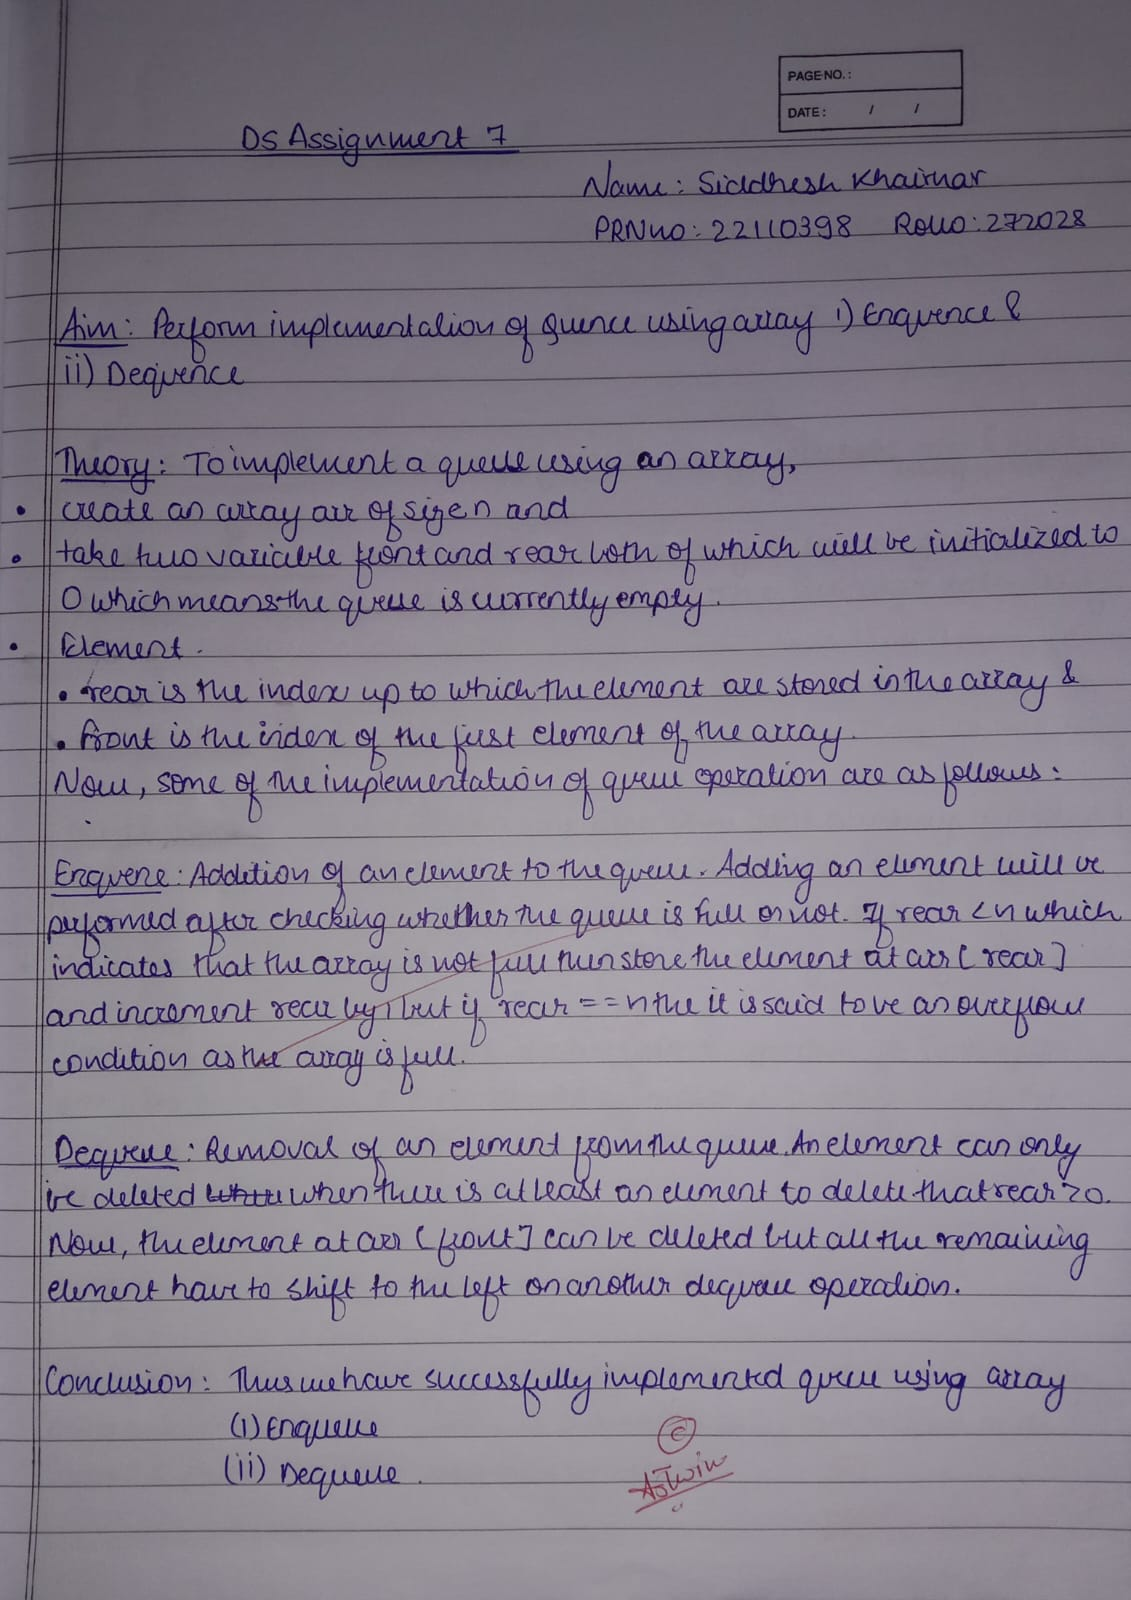 PAGE NO.:
DATE: / /
DS Assignment 7
Name: Siddhesh Khairnar
PRN no: 22110398 Rollno: 272028
Aim: Perform implementation of Quence using array i) Enquence &
ii) Dequence
Theory: To implement a queue using an array,
• create an array arr of size n and
• take two variable front and rear both of which will be initialized to
0 which means the queue is currently empty.
• Element.
• rear is the index up to which the element are stored in the array &
• front is the index of the first element of the array.
Now, some of the implementation of queue operation are as follows:
Enqueue: Addition of an element to the queue. Adding an element will be
performed after checking whether the queue is full or not. If rear < n which
indicates that the array is not full then store the element at arr [rear]
and increment rear by 1 but if rear == n the it is said to be an overflow
condition as the array is full.
Dequeue: Removal of an element from the queue. An element can only
be deleted when there is at least an element to delete that rear > 0.
Now, the element at arr [front] can be deleted but all the remaining
element have to shift to the left on another dequeue operation.
Conclusion: Thus we have successfully implemented queue using array
(i) Enqueue
(ii) Dequeue.
C